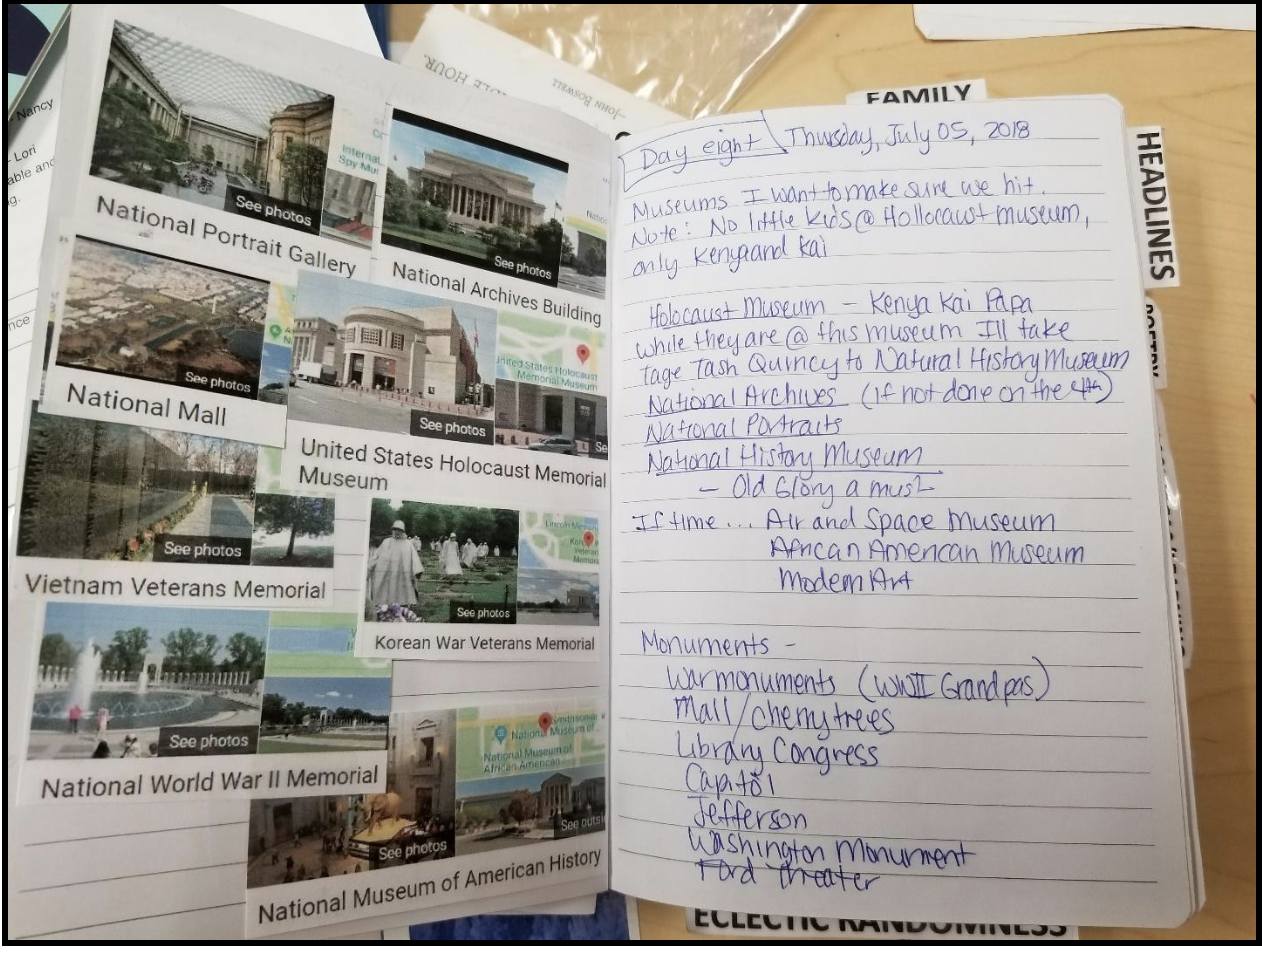 Nancy
- Lori
able and
g.
nce
DLE HOUR.
—JOHN BOSWELL
FAMILY
HEADLINES
POETRY
ECLECTIC RANDOMNESS
Internat
Spy Mus
See photos
National Portrait Gallery
See photos
National Archives Building
See photos
National Mall
United States Holocaust
Memorial Museum
See photos
Se
United States Holocaust Memorial
Museum
See photos
Vietnam Veterans Memorial
Lincoln Memorial
Veteran
Memoria
See photos
Korean War Veterans Memorial
See photos
National World War II Memorial
Smithsonian
National Museum of
National Museum of
African American
See photos
See outsi
National Museum of American History
Day eight Thursday, July 05, 2018
Museums I want to make sure we hit.
Note: No little kids @ Hollocaust museum,
only Kenya and Kai
Holocaust Museum - Kenya Kai Papa
while they are @ this museum Ill take
Tage Tash Quincy to Natural History Museum
National Archives (if not done on the 4th)
National Portraits
National History Museum
- Old Glory a must
If time... Air and Space Museum
African American Museum
Modern Art
Monuments -
War monuments (WWII Grandpas)
Mall/cherry trees
Library Congress
Capitol
Jefferson
Washington Monument
Ford Theater